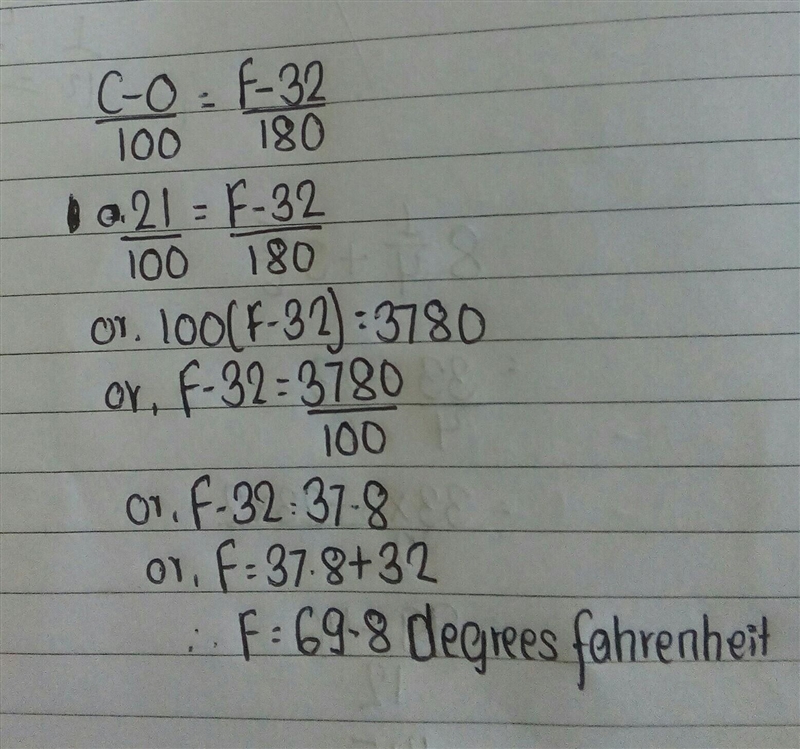 C-0/100 = F-32/180
or. 21/100 = F-32/180
or. 100(F-32) = 3780
or, F-32 = 3780/100
or, F-32 = 37.8
or, F = 37.8+32
∴ F = 69.8 degrees fahrenheit